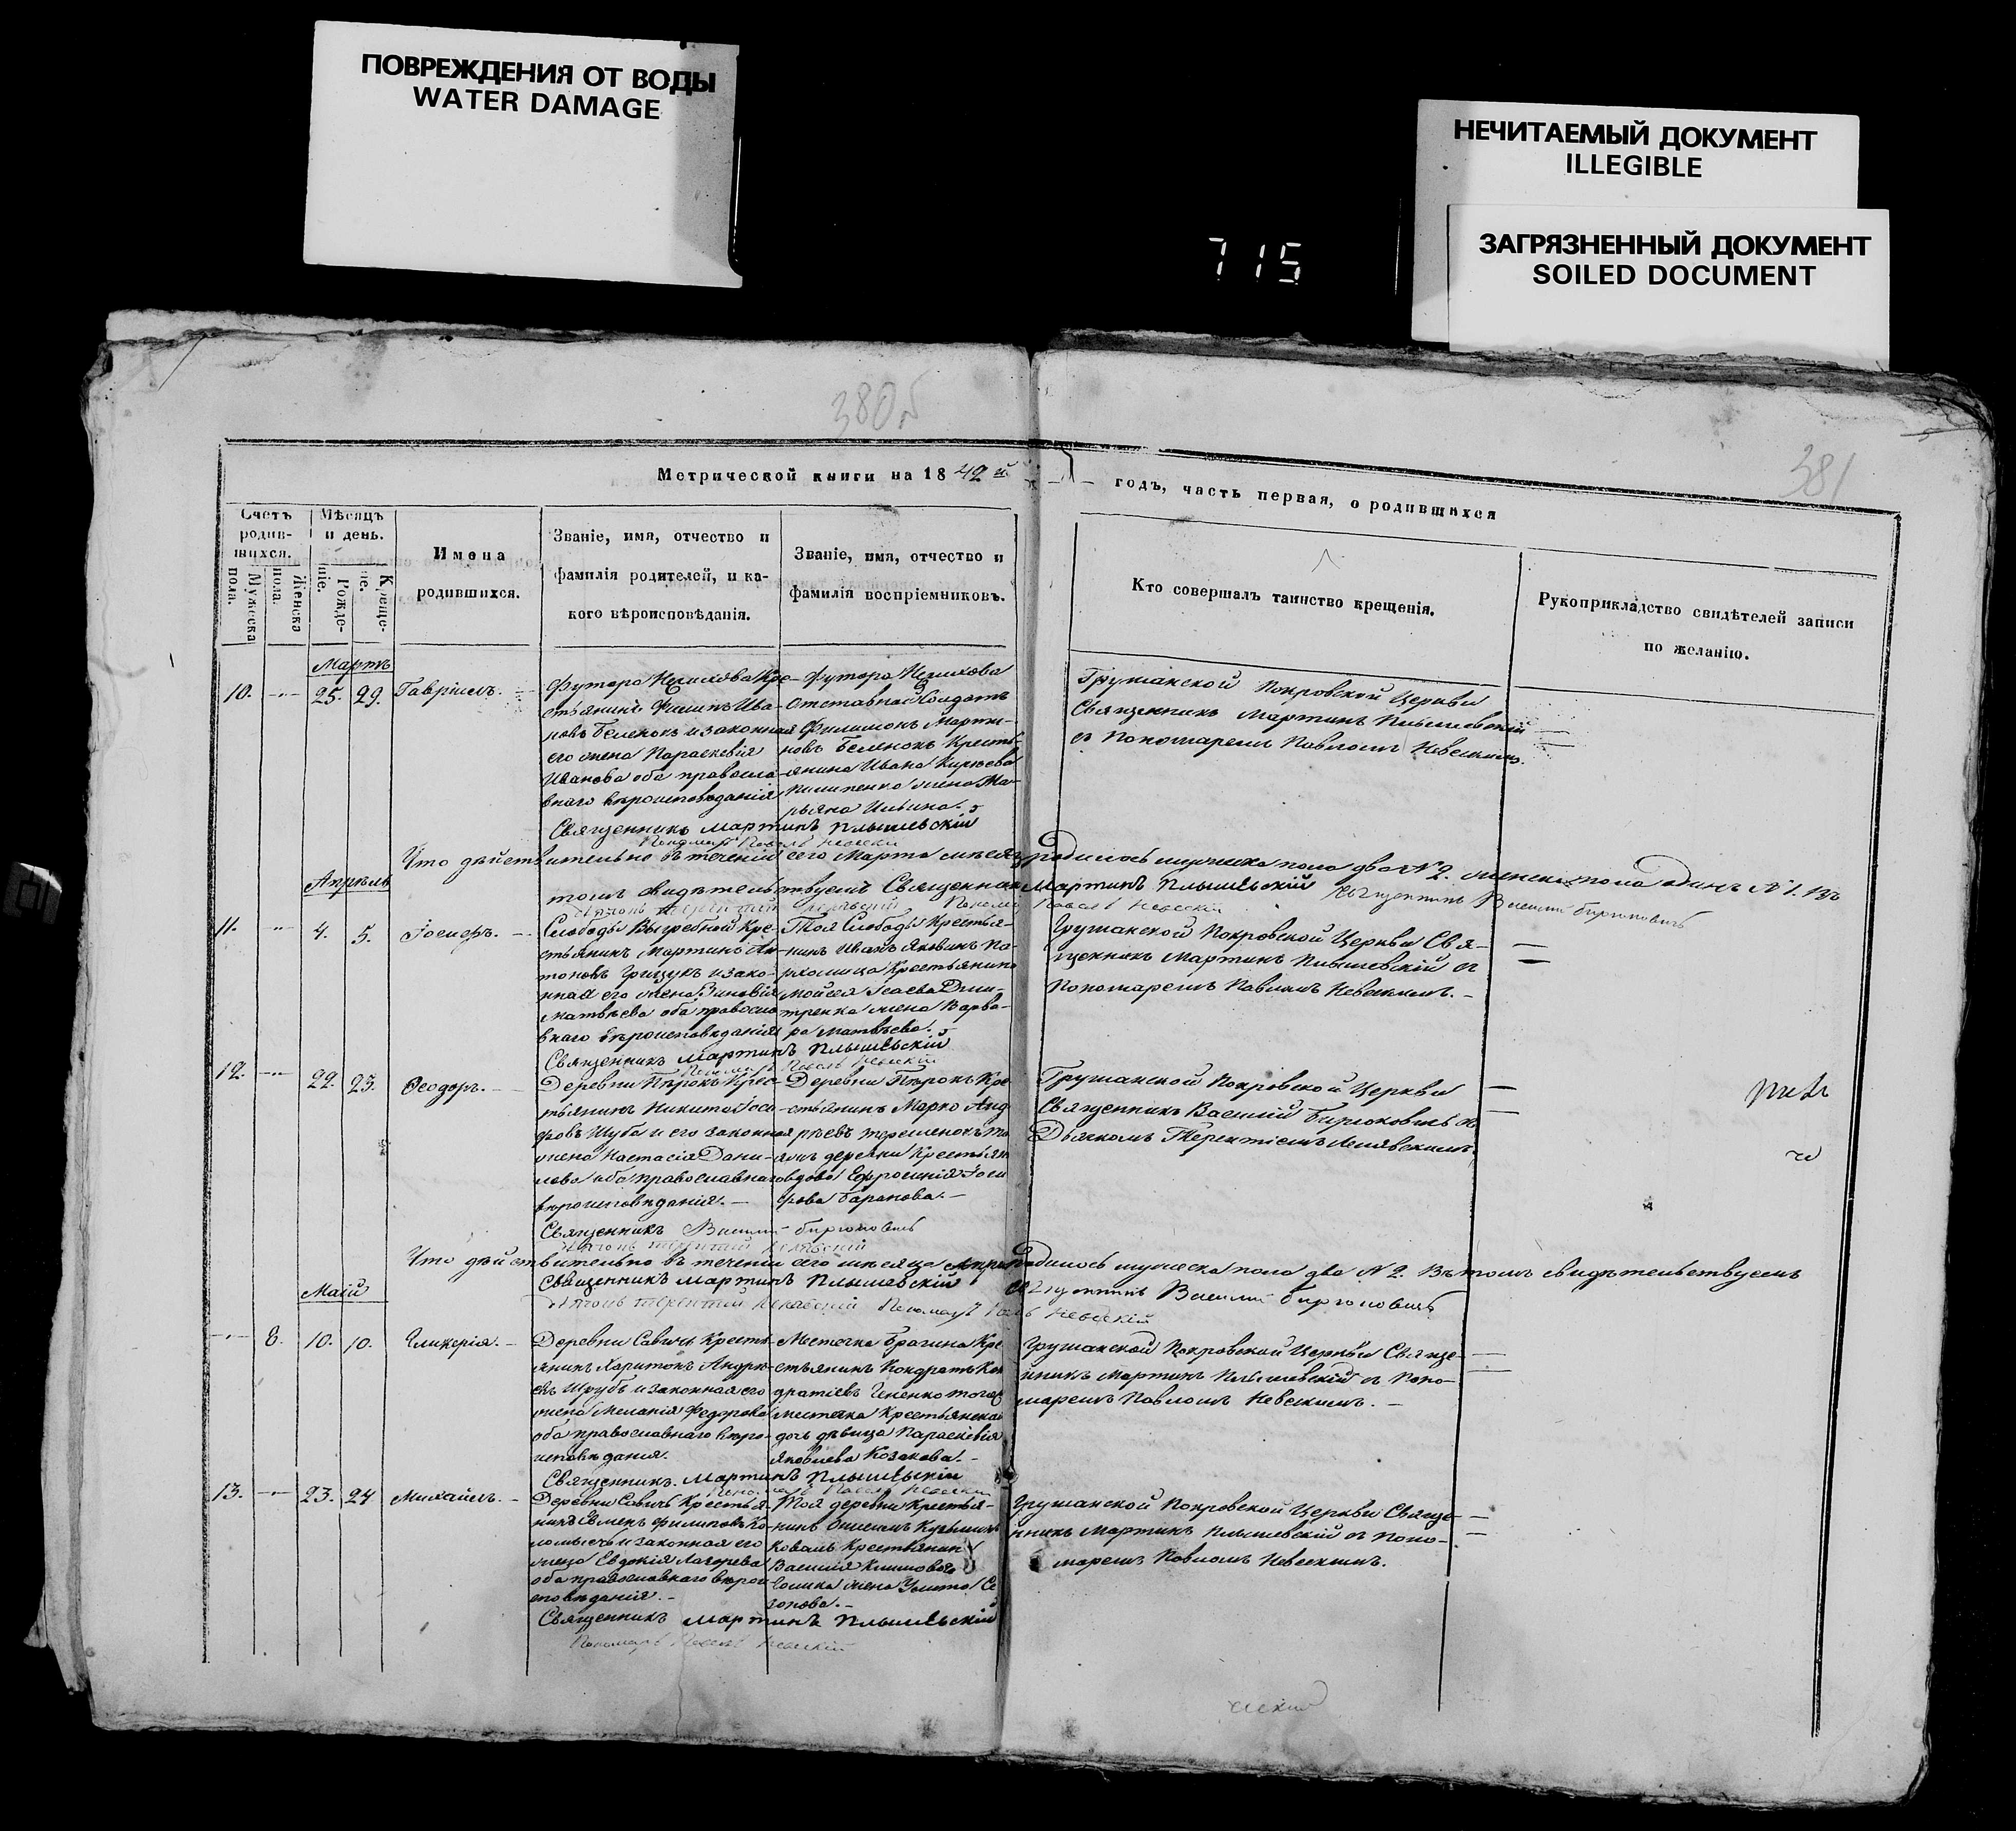 ПОВРЕЖДЕНИЯ ОТ ВОДЫ
WATER DAMAGE
НЕЧИТАЕМЫЙ ДОКУМЕНТ
ILLEGIBLE
ЗАГРЯЗНЕННЫЙ ДОКУМЕНТ
SOILED DOCUMENT
715
380
381
Метрической книги на 1842й годъ, часть первая, о родившихся
Счетъ родив-шихся.
Мужеска пола.
Женска пола.
Мѣсяцъ и день.
Рожде-ніе.
Креще-ніе.
Имена
родившихся.
Званіе, имя, отчество и
фамилія родителей, и ка-
кого вѣроисповѣданія.
Званіе, имя, отчество и
фамилія воспріемниковъ.
Кто совершалъ таинство крещенія.
Рукоприкладство свидѣтелей записи
по желанію.
Мартъ
10. 25. 29. Гавріилъ.
стьянинъ Филипъ Ива-
новъ Беленокъ и законная
его жена Параскевія
Иванова оба правосла-
внаго вѣроисповѣданія
отставной Солдатъ
Филимонъ Марти-
новъ Беленокъ Кресть-
янина Ивана
Пилипенко жена Ма-
рьяна Ильина.
Грушанской Покровской Церкви
Священникъ Мартинъ Плышевскій
съ Пономаремъ Павломъ Невскимъ.
Священникъ Мартинъ Плышевскій
Пономарь Павелъ Невскій
Что дѣйствительно въ теченіи сего Марта мѣсяца родилось мужеска пола два №2. женска пола одинъ №1. Въ
томъ свидѣтельствуемъ Священникъ Мартинъ Плышевскій Священникъ Василій Бирюковичъ
Пономарь Павелъ Невскій
Апрѣль
11. 4. 5. Іосифъ.
Слободы Выгребной Кре-
стьянинъ Мартинъ Ан-
тоновъ Грицукъ и зако-
нная его жена Зиновія
Матвѣева оба правосла-
внаго вѣроисповѣданія
Тоя Слободы Крестья-
нинъ Иванъ Яковинъ Па-
рхомца Крестьянина
Мойсея Исаева Дми-
тренка жена Варва-
ра Матвѣева.
Грушанской Покровской Церкви Свя-
щенникъ Мартинъ Плышевскій съ
Пономаремъ Павломъ Невскимъ.
Священникъ Мартинъ Плышевскій
Пономарь Павелъ Невскій
12. 22. 25. Ѳеодоръ.
Деревни Пѣрокъ Кре-
стьянинъ Никита Іоси-
фовъ Шуба и его законная
жена Настасія Дани-
лова оба православнаго
вѣроисповѣданія.
Деревни Пѣрокъ Кре-
стьянинъ Марко Анд-
рѣевъ
деревни Крестьян
вдова Ефросинія Іоси-
фова Баранова.
Грушанской Покровской Церкви
Священникъ Василій Бирюковичъ съ
Дьячкомъ Терентіемъ Лелявскимъ
Священникъ Василій Бирюковичъ
Дьячокъ Терентій Лелявскій
Что дѣйствительно въ теченіи сего мѣсяца Апрѣля родилось мужеска пола два №2. Въ томъ свидѣтельствуемъ
Священникъ Мартинъ Плышевскій Священникъ Василій Бирюковичъ
Дьячокъ Терентій Лелявскій Пономарь Павелъ Невскій
Маій
8. 10. 10. Гликерія.
Деревни Савичъ Кресть-
янинъ Харитонъ Андрѣ-
евъ Шрубъ и законная его
жена Меланія Федорова
оба православнаго вѣро-
исповѣданія.
Местечка Брагина Кре-
стьянинъ Кондратъ Кон-
дратіевъ того
местечка Крестьянская
дочь дѣвица Параскевія
Яковлева Козакова.
Грушанской Покровской Церкви Свяще-
нникъ Мартинъ Плышевскій съ Поно-
маремъ Павломъ Невскимъ.
Священникъ Мартинъ Плышевскій
Пономарь Павелъ Невскій
13. 23. 24 Михаилъ.
Деревни Савичъ Крестья-
нинъ Семенъ Филиповъ Ко-
и законная его
жена Евдокія Лазарева
оба православнаго вѣрои-
сповѣданія.
Тоя деревни Крестья-
нинъ Кузьминъ
Коваль Крестьянина
Василія Климова
жена
Грушанской Покровской Церкви Свяще-
нникъ Мартинъ Плышевскій съ Поно-
маремъ Павломъ Невскимъ.
Священникъ Мартинъ Плышевскій
Пономарь Павелъ Невскій